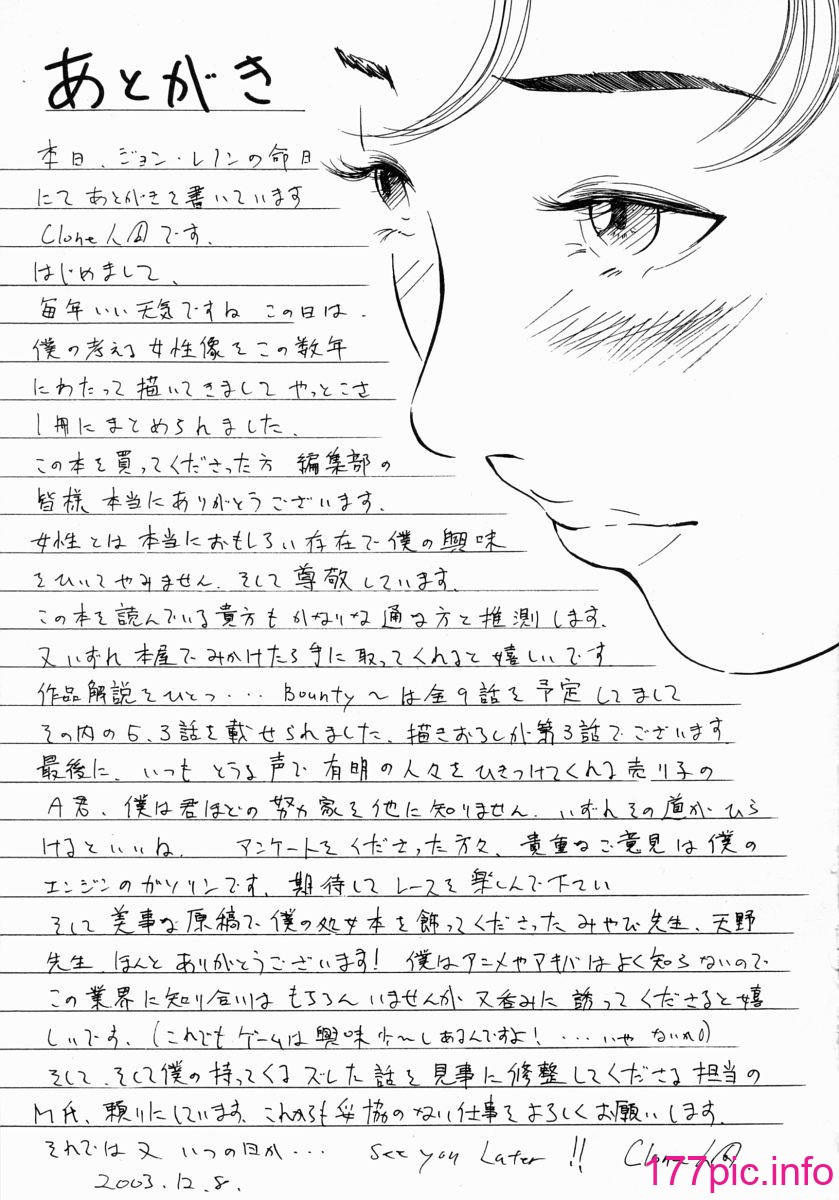 あとがき
本日、ジョン・レノンの命日
にて あとがきを書いています
Clone人間です.
はじめまして、
毎年いい天気ですね この日は.
僕の考える女性像をこの数年
にわたって描いてきまして やっとこさ
1冊にまとめられました.
この本を買ってくださった方 編集部の
皆様 本当にありがとうございます.
女性とは本当におもしろい存在で僕の興味
をひいてやみません. そして尊敬しています.
この本を読んでいる貴方も かなりな通な方と推測します.
又いずれ 本屋でみかけたら手に取ってくれると嬉しいです
作品解説をひとつ・・・ Bounty〜は全9話を予定してまして
その内の5.3話を載せられました. 描きおろしが第3話でございます.
最後に、いつも とうる声で有明の人々をひきつけてくれる売り子の
A君、僕は君ほどの努力家を他に知りません. いずれその道がひら
けるといいね. アンケートをくださった方々、貴重なご意見は僕の
エンジンのガソリンです. 期待してレースを楽しんで下さい
そして美事な原稿で僕の処女本を飾ってくださったみやび先生、天野
先生 ほんと ありがとうございます! 僕はアニメやアキバはよく知らないので
この業界に知り合いはもちろんいませんが 又呑みに誘ってくださると嬉
しいです. (これでもゲームは興味少〜しあるんですよ! ・・・いや ないか)
そして、そして僕の持ってくるズレた話を見事に修整してくださる担当の
M氏、頼りにしています. これからも妥協のない仕事をよろしくお願いします.
それでは又 いつの日か・・・ See you Later !! Clone人間.
2003.12.8.
177pic.info